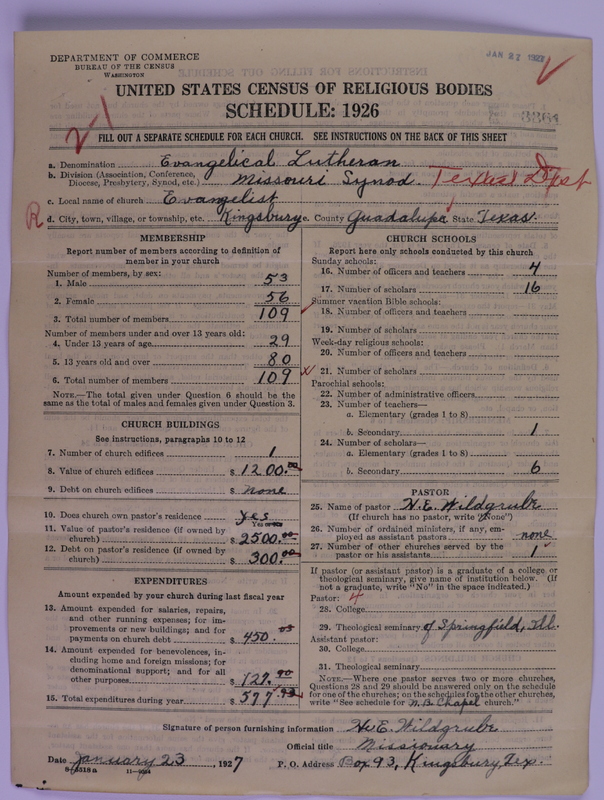 DEPARTMENT OF COMMERCE
BUREAU OF THE CENSUS
WASHINGTON
JAN 27 1927
UNITED STATES CENSUS OF RELIGIOUS BODIES
SCHEDULE: 1926
3361
FILL OUT A SEPARATE SCHEDULE FOR EACH CHURCH. SEE INSTRUCTIONS ON THE BACK OF THIS SHEET
a. Denomination Evangelical Lutheran
b. Division (Association, Conference, Diocese, Presbytery, Synod, etc.) Missouri Synod Texas Dist
c. Local name of church Evangelist
R d. City, town, village, or township, etc. Kingsbury e. County Guadalupa State Texas.
MEMBERSHIP
Report number of members according to definition of
member in your church
Number of members, by sex:
1. Male 53
2. Female 56
3. Total number of members 109
Number of members under and over 13 years old:
4. Under 13 years of age 29
5. 13 years old and over 80
6. Total number of members 109
NOTE.—The total given under Question 6 should be the
same as the total of males and females given under Question 3.
CHURCH BUILDINGS
See instructions, paragraphs 10 to 12
7. Number of church edifices 1
8. Value of church edifices $ 1200.00
9. Debt on church edifices $ none
10. Does church own pastor's residence yes
Yes or no
11. Value of pastor's residence (if owned by
church) $ 2500.00
12. Debt on pastor's residence (if owned by
church) $ 300.00
EXPENDITURES
Amount expended by your church during last fiscal year
13. Amount expended for salaries, repairs,
and other running expenses; for im-
provements or new buildings; and for
payments on church debt $ 450.03
14. Amount expended for benevolences, in-
cluding home and foreign missions; for
denominational support; and for all
other purposes $ 127.90
15. Total expenditures during year $ 577.93
CHURCH SCHOOLS
Report here only schools conducted by this church
Sunday schools:
16. Number of officers and teachers 4
17. Number of scholars 16
Summer vacation Bible schools:
18. Number of officers and teachers
19. Number of scholars
Week-day religious schools:
20. Number of officers and teachers
21. Number of scholars
Parochial schools:
22. Number of administrative officers
23. Number of teachers—
a. Elementary (grades 1 to 8)
b. Secondary 1
24. Number of scholars—
a. Elementary (grades 1 to 8)
b. Secondary 6
PASTOR
25. Name of pastor H. E. Wildgrube
(If church has no pastor, write "None")
26. Number of ordained ministers, if any, em-
ployed as assistant pastors none
27. Number of other churches served by the
pastor or his assistants 1
If pastor (or assistant pastor) is a graduate of a college or
theological seminary, give name of institution below. (If
not a graduate, write "No" in the space indicated.)
Pastor: 4
28. College
29. Theological seminary of Springfield, Ill.
Assistant pastor:
30. College
31. Theological seminary
NOTE.—Where one pastor serves two or more churches,
Questions 28 and 29 should be answered only on the schedule
for one of the churches; on the schedules for the other churches,
write "See schedule for N.B. Chapel church."
Signature of person furnishing information H. E. Wildgrube
Official title Missionary
Date January 23, 1927 P. O. Address Box 93, Kingsbury, Tex.
8-3518 a 11-1664